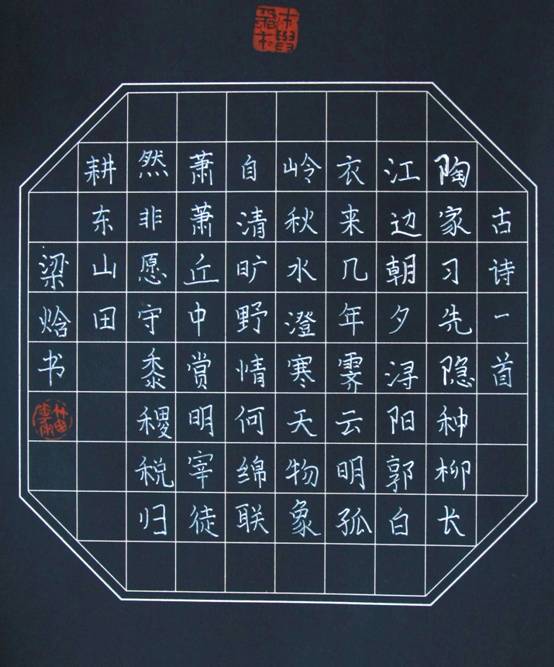 古诗一首
陶家习先隐种柳长
江边朝夕浔阳郭白
衣来几年霁云明孤
岭秋水澄寒天物象
自清旷野情何绵联
萧萧丘中赏明宰徒
然非愿守黍稷税归
耕东山田
梁焓书